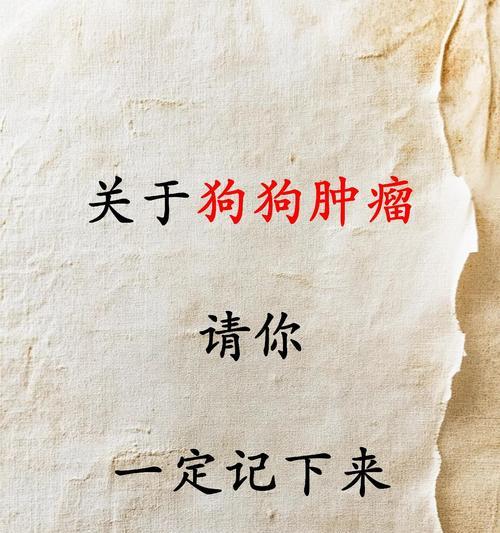 关于狗狗肿瘤
请你
一定记下来